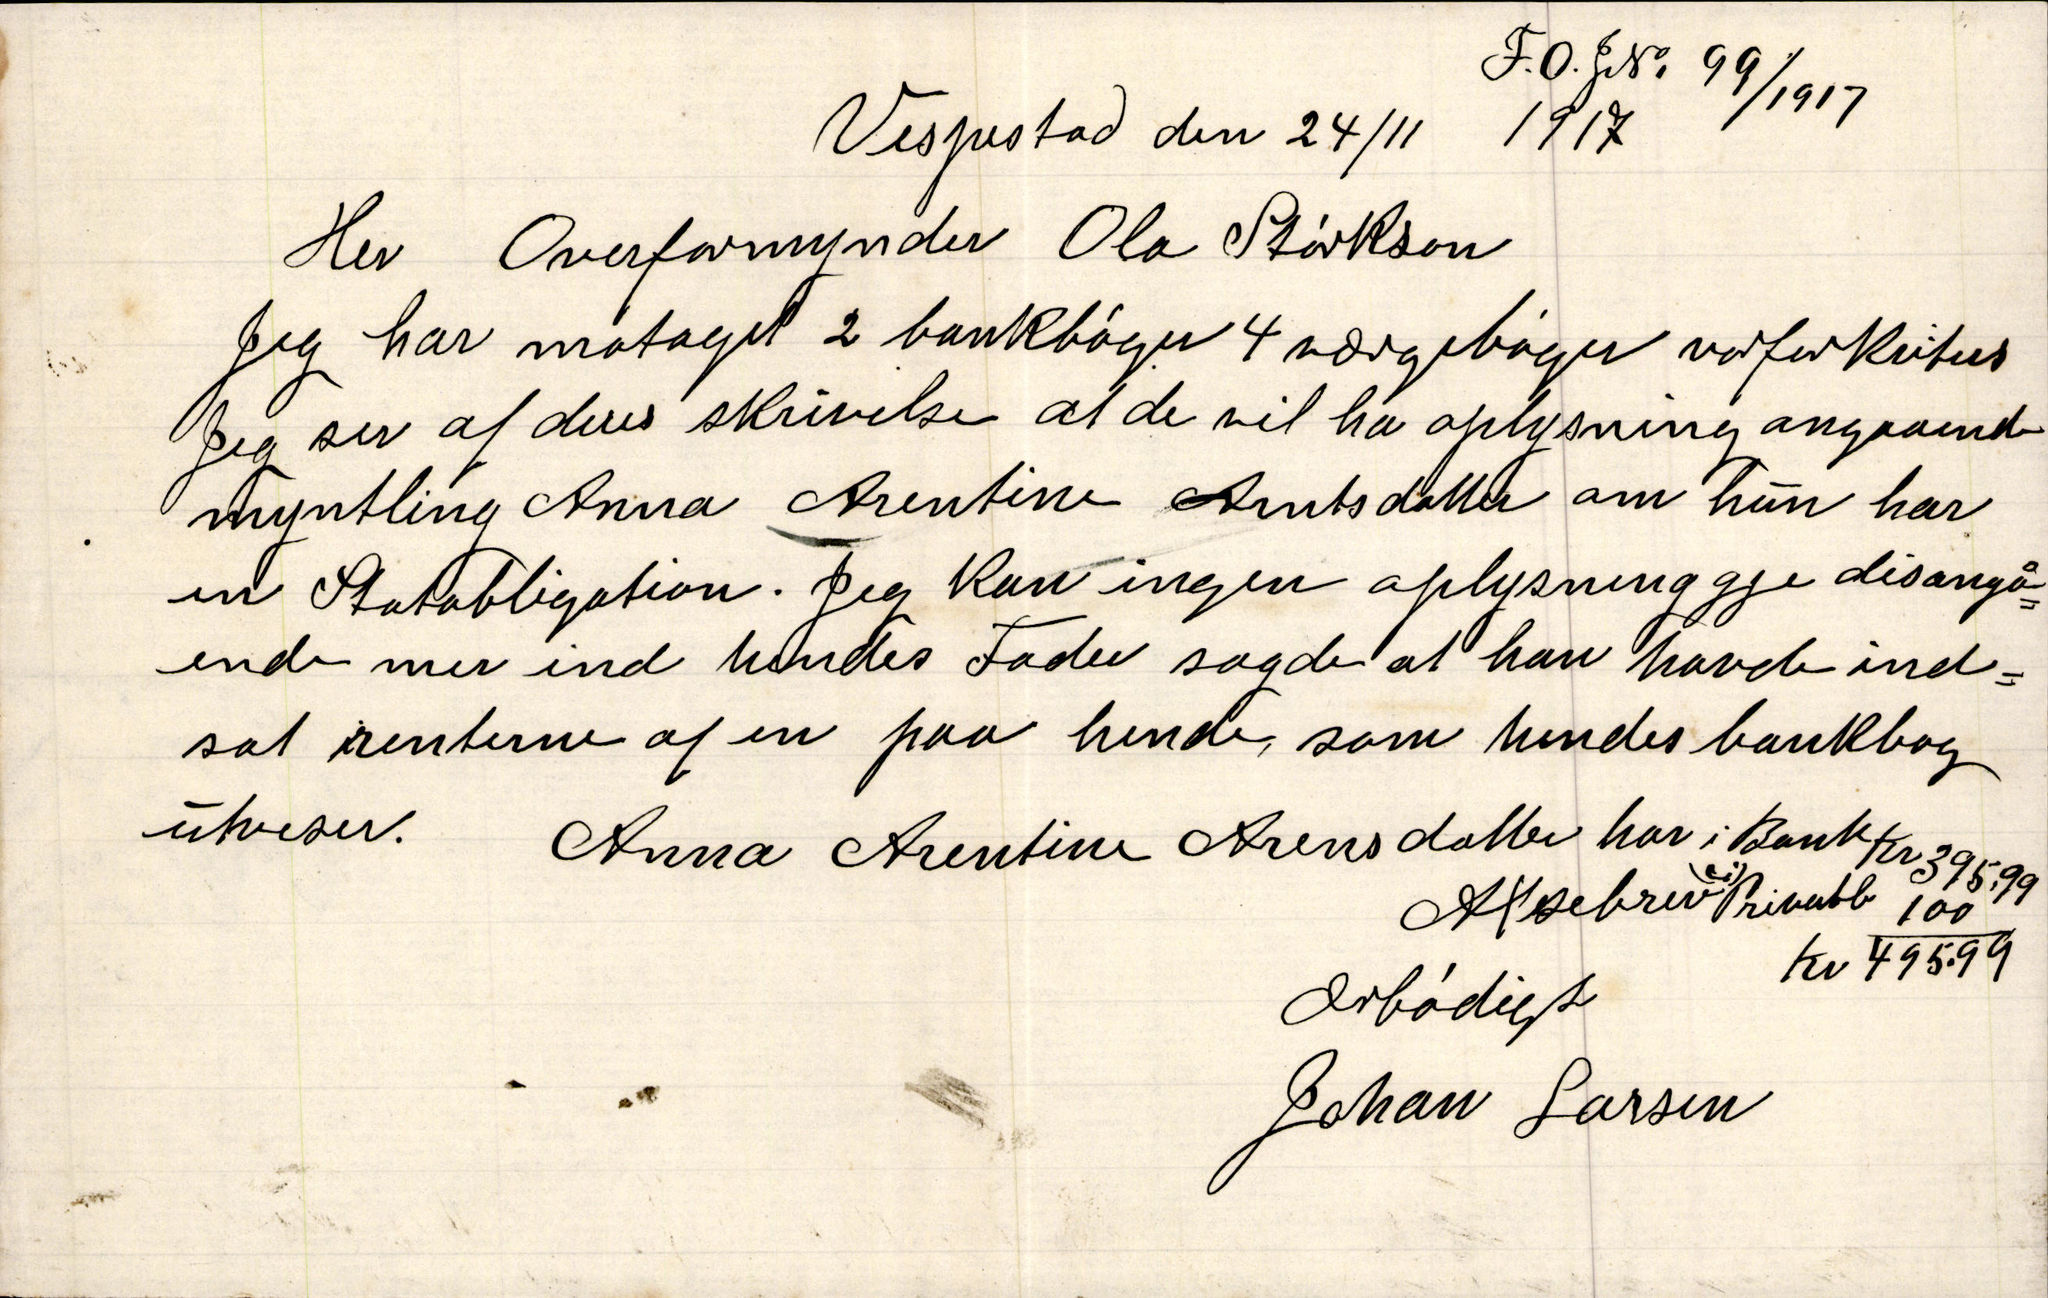 F.O. J.No. 99/1917
Vespestad den 24/11 1917
Her Overformynder Ola Störkson
Jeg har motaget 2 bankböger 4 værgeböger vorfor kviteres
Jeg ser af deres skrivelse at de vil ha oplysning angaaende
myntling Anna Arentine Arntsdatter om hun har
en Statobligation. Jeg kan ingen oplysning gje disangå=
ende mer ind hendes Fader sagde at han havde ind=
sat renterne af en paa hende, som hendes bankbog
utviser. Anna Arentine Arensdatter har i Bank Kr 395,99
Aksebrev i Privatb 100
Kr 495.99
Ærbödigst
Johan Larsen